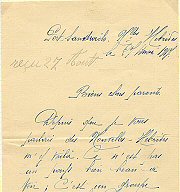 Port-Sandwich, Nlles Hébrides
le 27
reçu 27 Août
Biens chers parents
Depuis que je vous
parlais des Nouvelles-Hébrides
m'y voilà. Ce n'est pas
un pays bien beau à
voir; c'est un groupe